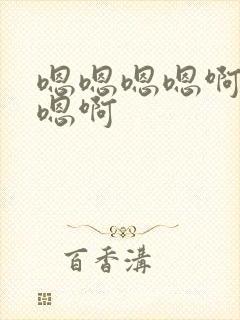 嗯嗯嗯嗯啊
嗯啊
百香溝